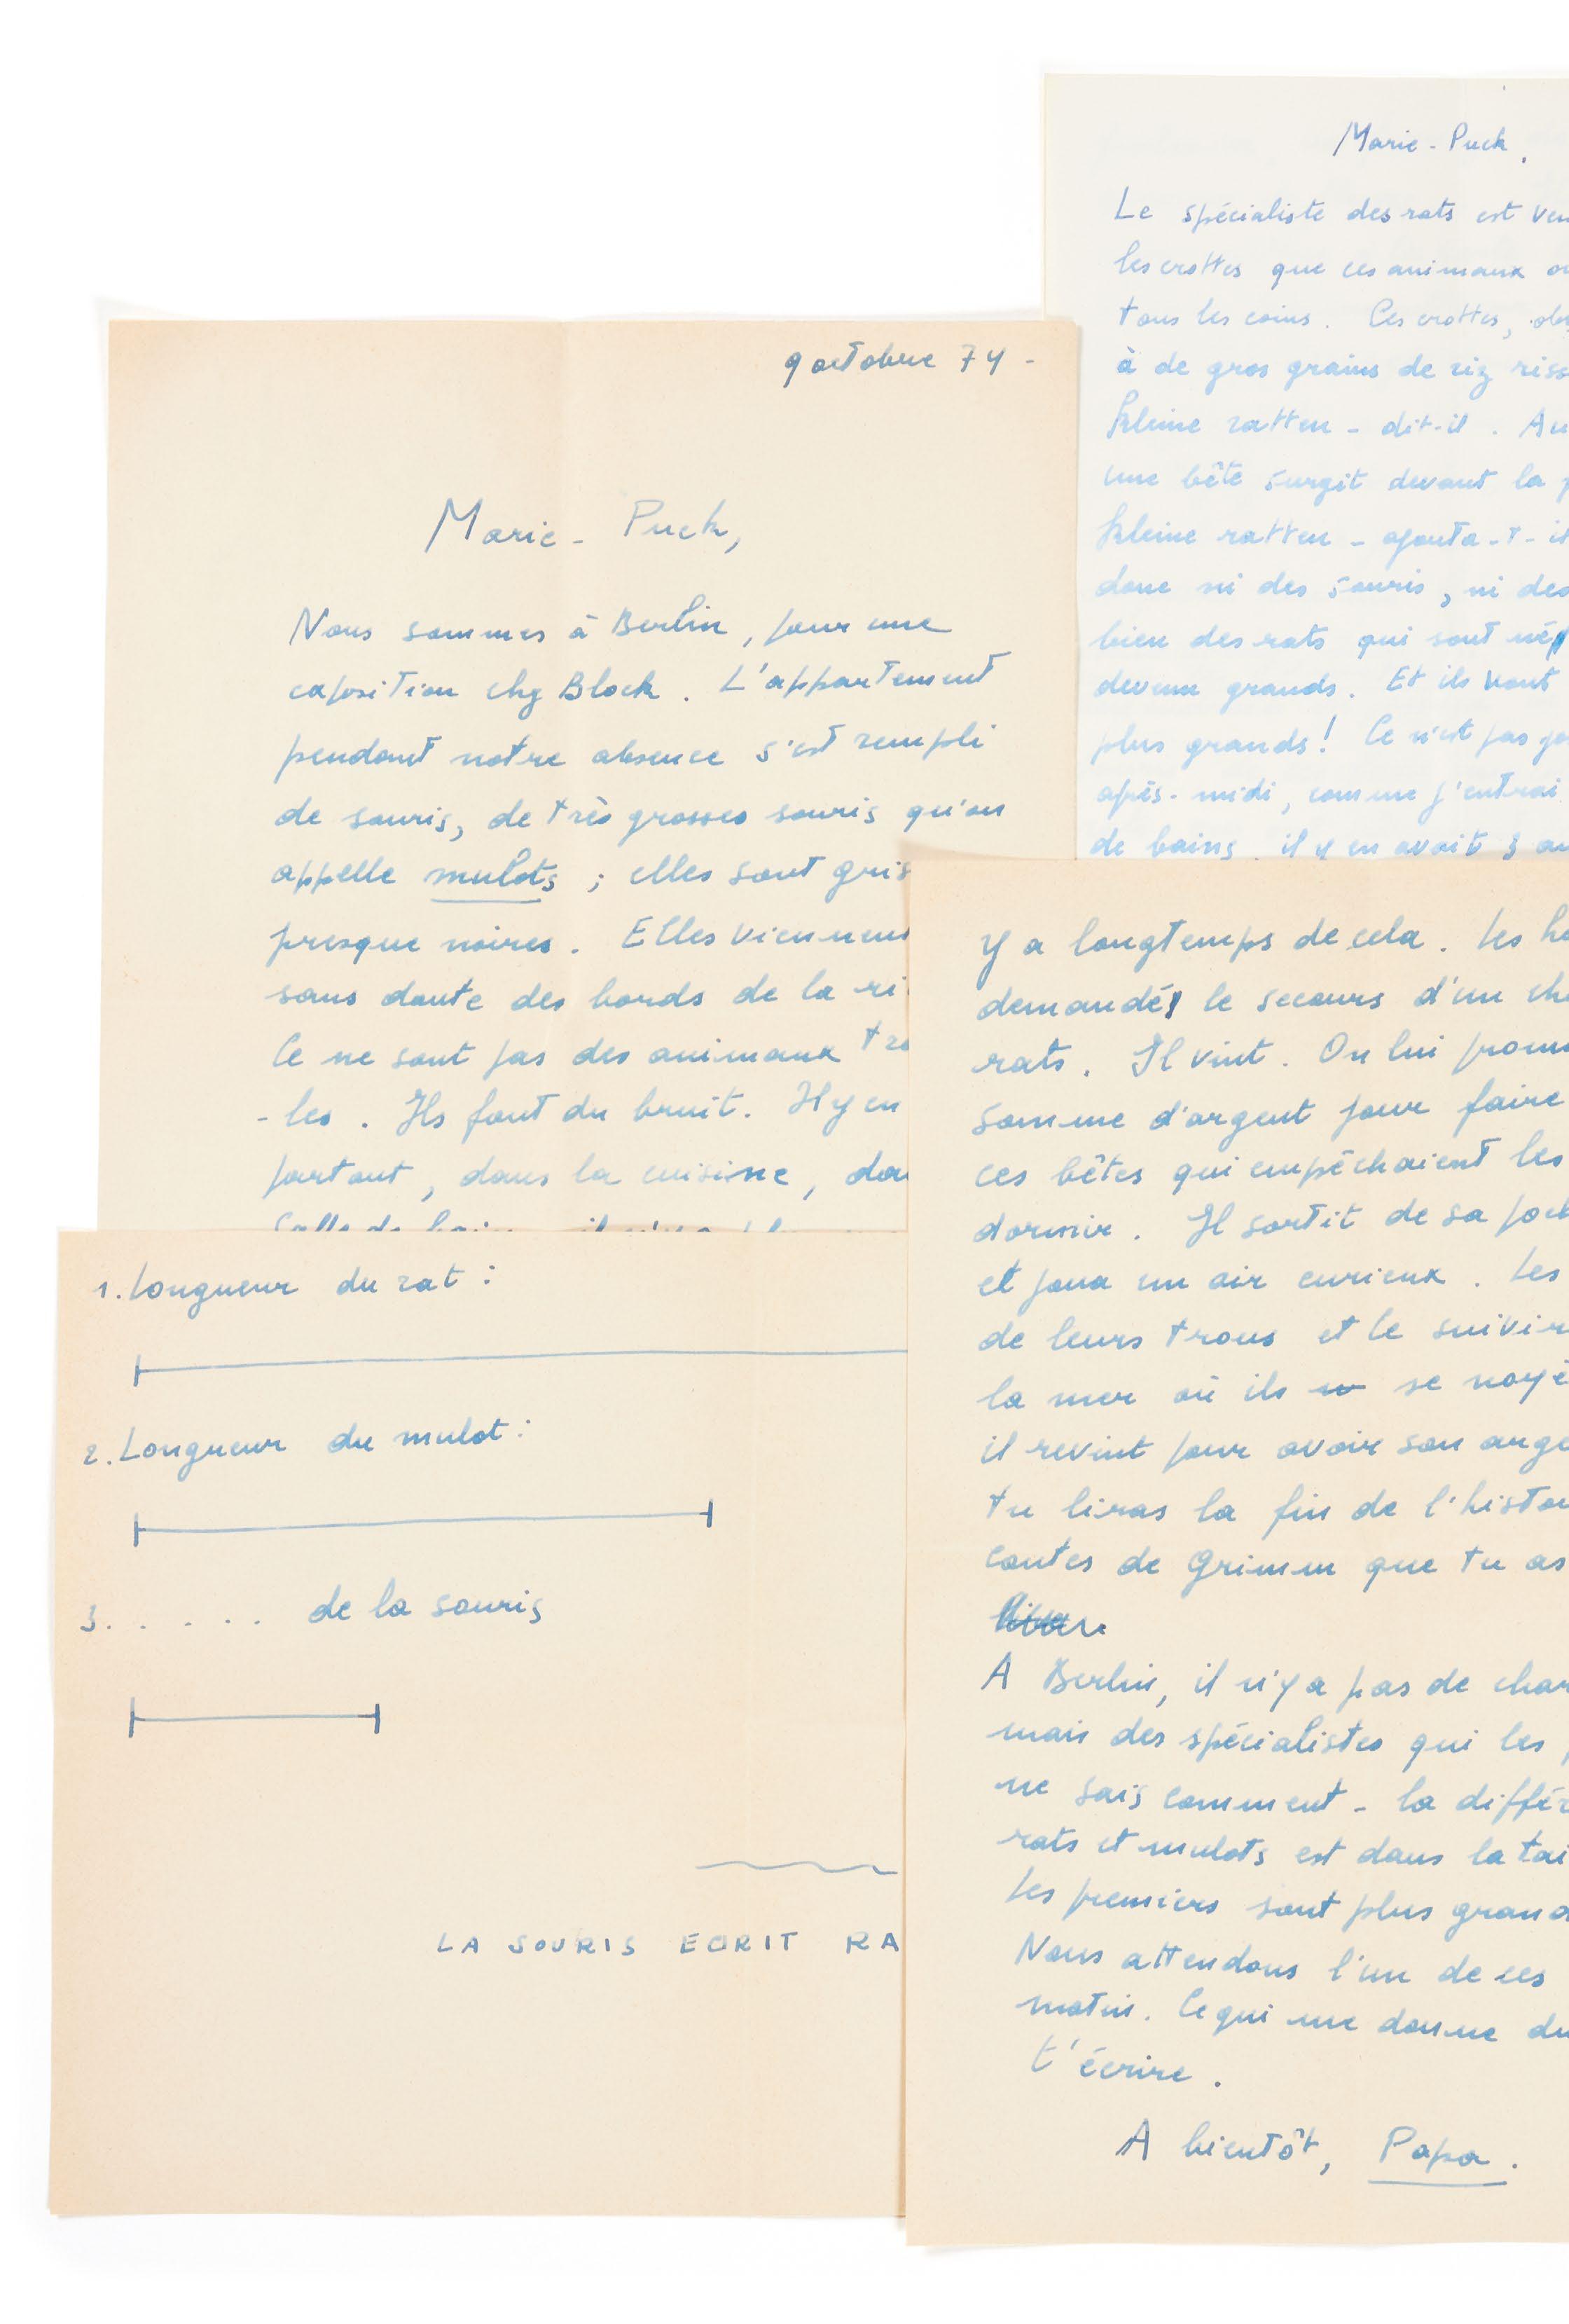 9 octobre 74 -
Marie - Puck,
Nous sommes à Berlin, pour une
exposition chez Block. L'appartement
pendant notre absence s'est rempli
de souris, de très grosses souris qu'on
appelle mulots ; elles sont gris
presque noires. Elles viennent
sans doute des bords de la ri
Ce ne sont pas des animaux
-les. Ils font du bruit. Il y en
partout, dans la cuisine, da
Marie - Puck,
Le spécialiste des rats est ven
les crottes que ces animaux
tous les coins. Ces crottes,
à de gros grains de riz riss
kleine ratten - dit-il. Au
une bête surgit devant la
kleine ratten - ajouta-t-il
donc ni des souris, ni des
bien des rats qui sont nés
devenu grands. Et ils vont
plus grands! Ce n'est pas
après-midi, comme j'entrai
de bains, il y en avait 3
1. Longueur du rat :
2. Longueur du mulot :
3. . . . . . de la souris
LA SOURIS ECRIT RA
y a longtemps de cela. Les
demandé le secours d'un
rats. Il vint. On lui
somme d'argent pour faire
ces bêtes qui empêchaient les
dormir. Il sortit de sa
et joua un air curieux. Les
de leurs trous et le suivir
la mer où ils se noyè
il revint pour avoir son arge
tu liras la fin de l'histo
contes de Grimm que tu as
A Berlin, il n'y a pas de char
mais des spécialistes qui les
ne sais comment - la différ
rats et mulots est dans la tai
Les premiers sont plus grand
Nous attendons l'un de ces
matin. Ce qui me donne du
t'écrire.
A bientôt, Papa.